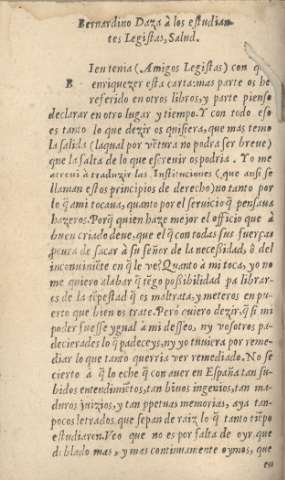 Bernardino Daza à los estudian-
tes Legistas, Salud.
BIen tenia (Amigos Legistas) con que
enriquezer esta carta: mas parte os he
referido en otros libros, y parte pienso
declarar en otro lugar y tiempo. Y con todo eso
es tanto lo que dezir os quisiera, que mas temo
la salida (la qual por vẽtura no podra ser breve)
que la falta de lo que escrevir os podria. Yo me
atreui à traduzir las Instituciones (que ansi se
llaman estos principios de derecho) no tanto por
lo q̃ à mi tocaua, quanto por el servicio q̃ pensaua
hazeros. Porq̃ quien haze mejor el officio que à
buen criado deve, que el q̃ con todas sus fuerças
procura de sacar à su señor de la necesidad, ò del
inconuiniẽte en q̃ le ve? Quanto à mi toca, yo no
me quiero alabar q̃ tẽgo posibilidad pa librar-
es de la tẽpestad q̃ os maltrata, y meteros en pu-
erto que bien os trate. Però quiero dezir, q̃ si mi
poder fuesse ygual à mi desseo, ny vosotros pa-
decieradeslo q̃ padeceys, ny yo tuuiera por reme-
diar lo que tanto querria ver remediado. No se
cierto à q̃ lo eche q̃ con auer en España tan su-
bidos entendimiẽtos, tan biuos ingenios, tan ma-
duros juizios, y tan ppetuas memorias, aya tan
pocos letrados, que sepan de raiz lo q̃ tanto tiẽpo
estudiaron. Veo que no es por falta de oyr, que
dẽ blado mas, y mas continuamente oymos, que
en